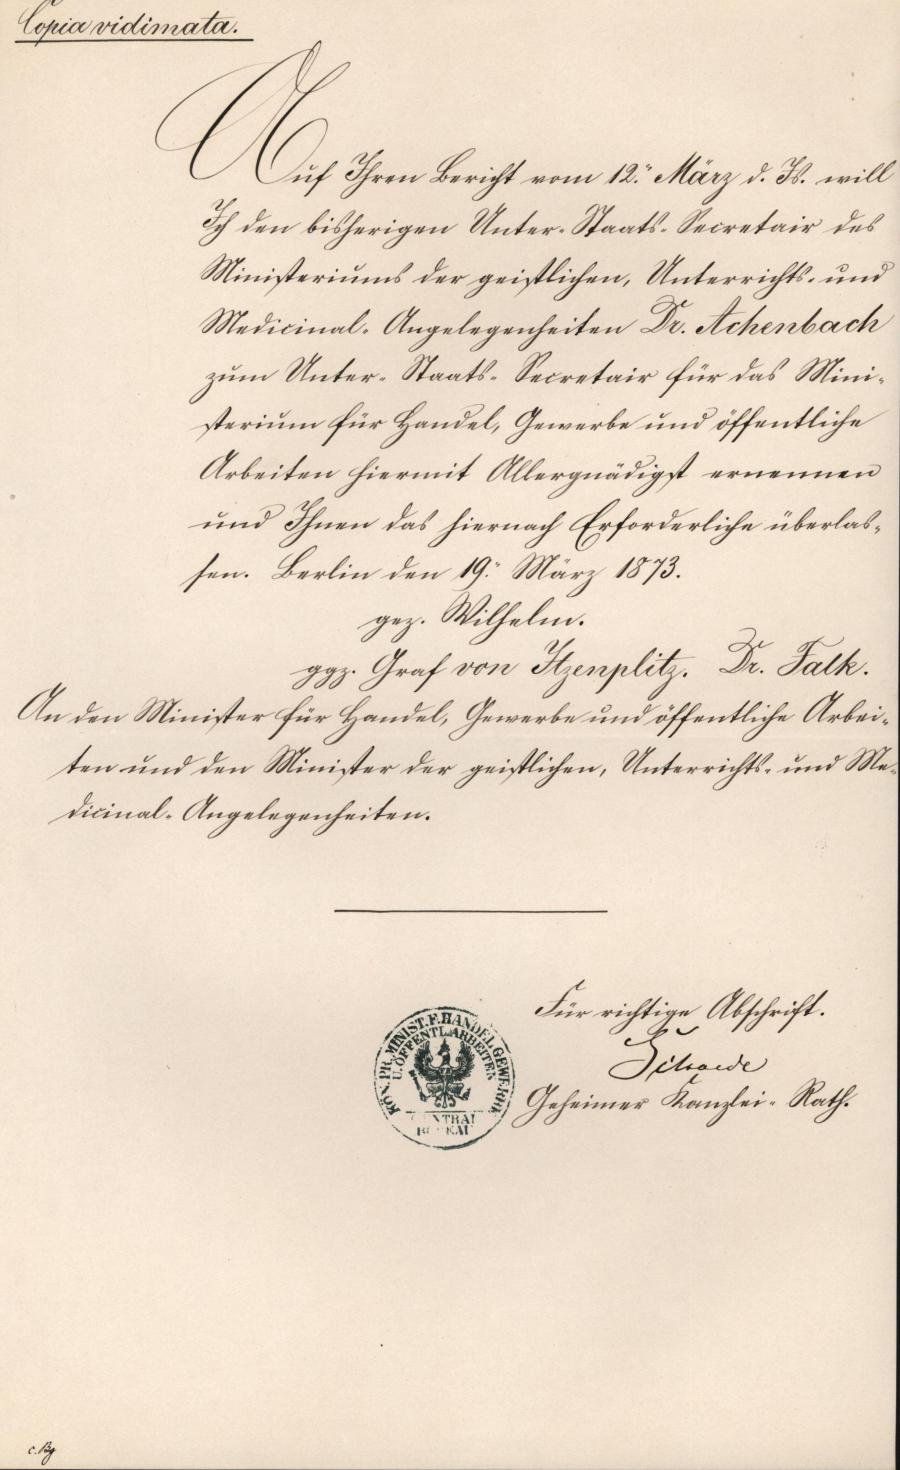 Copia vidimata.
Auf Ihren Bericht vom 12. März d. Js. will
Ich den bisherigen Unter-Staats-Secretair des
Ministeriums der geistlichen, Unterrichts- und
Medicinal-Angelegenheiten Dr. Achenbach
zum Unter-Staats-Secretair für das Mini-
sterium für Handel, Gewerbe und öffentliche
Arbeiten hiermit Allergnädigst ernennen
und Ihnen das hiernach Erforderliche überlas-
sen. Berlin den 19. März 1873.
gez. Wilhelm.
ggz. Graf von Itzenplitz. Dr. Falk.
An den Minister für Handel, Gewerbe und öffentliche Arbei-
ten und den Minister der geistlichen, Unterrichts- und Me-
dicinal-Angelegenheiten.
Für richtige Abschrift.
Geheimer Kanzlei-Rath.
KÖN. PR. MINIST. F. HANDEL, GEWERBE
U. ÖFFENTL. ARBEITEN
CENTRAL
BUREAU